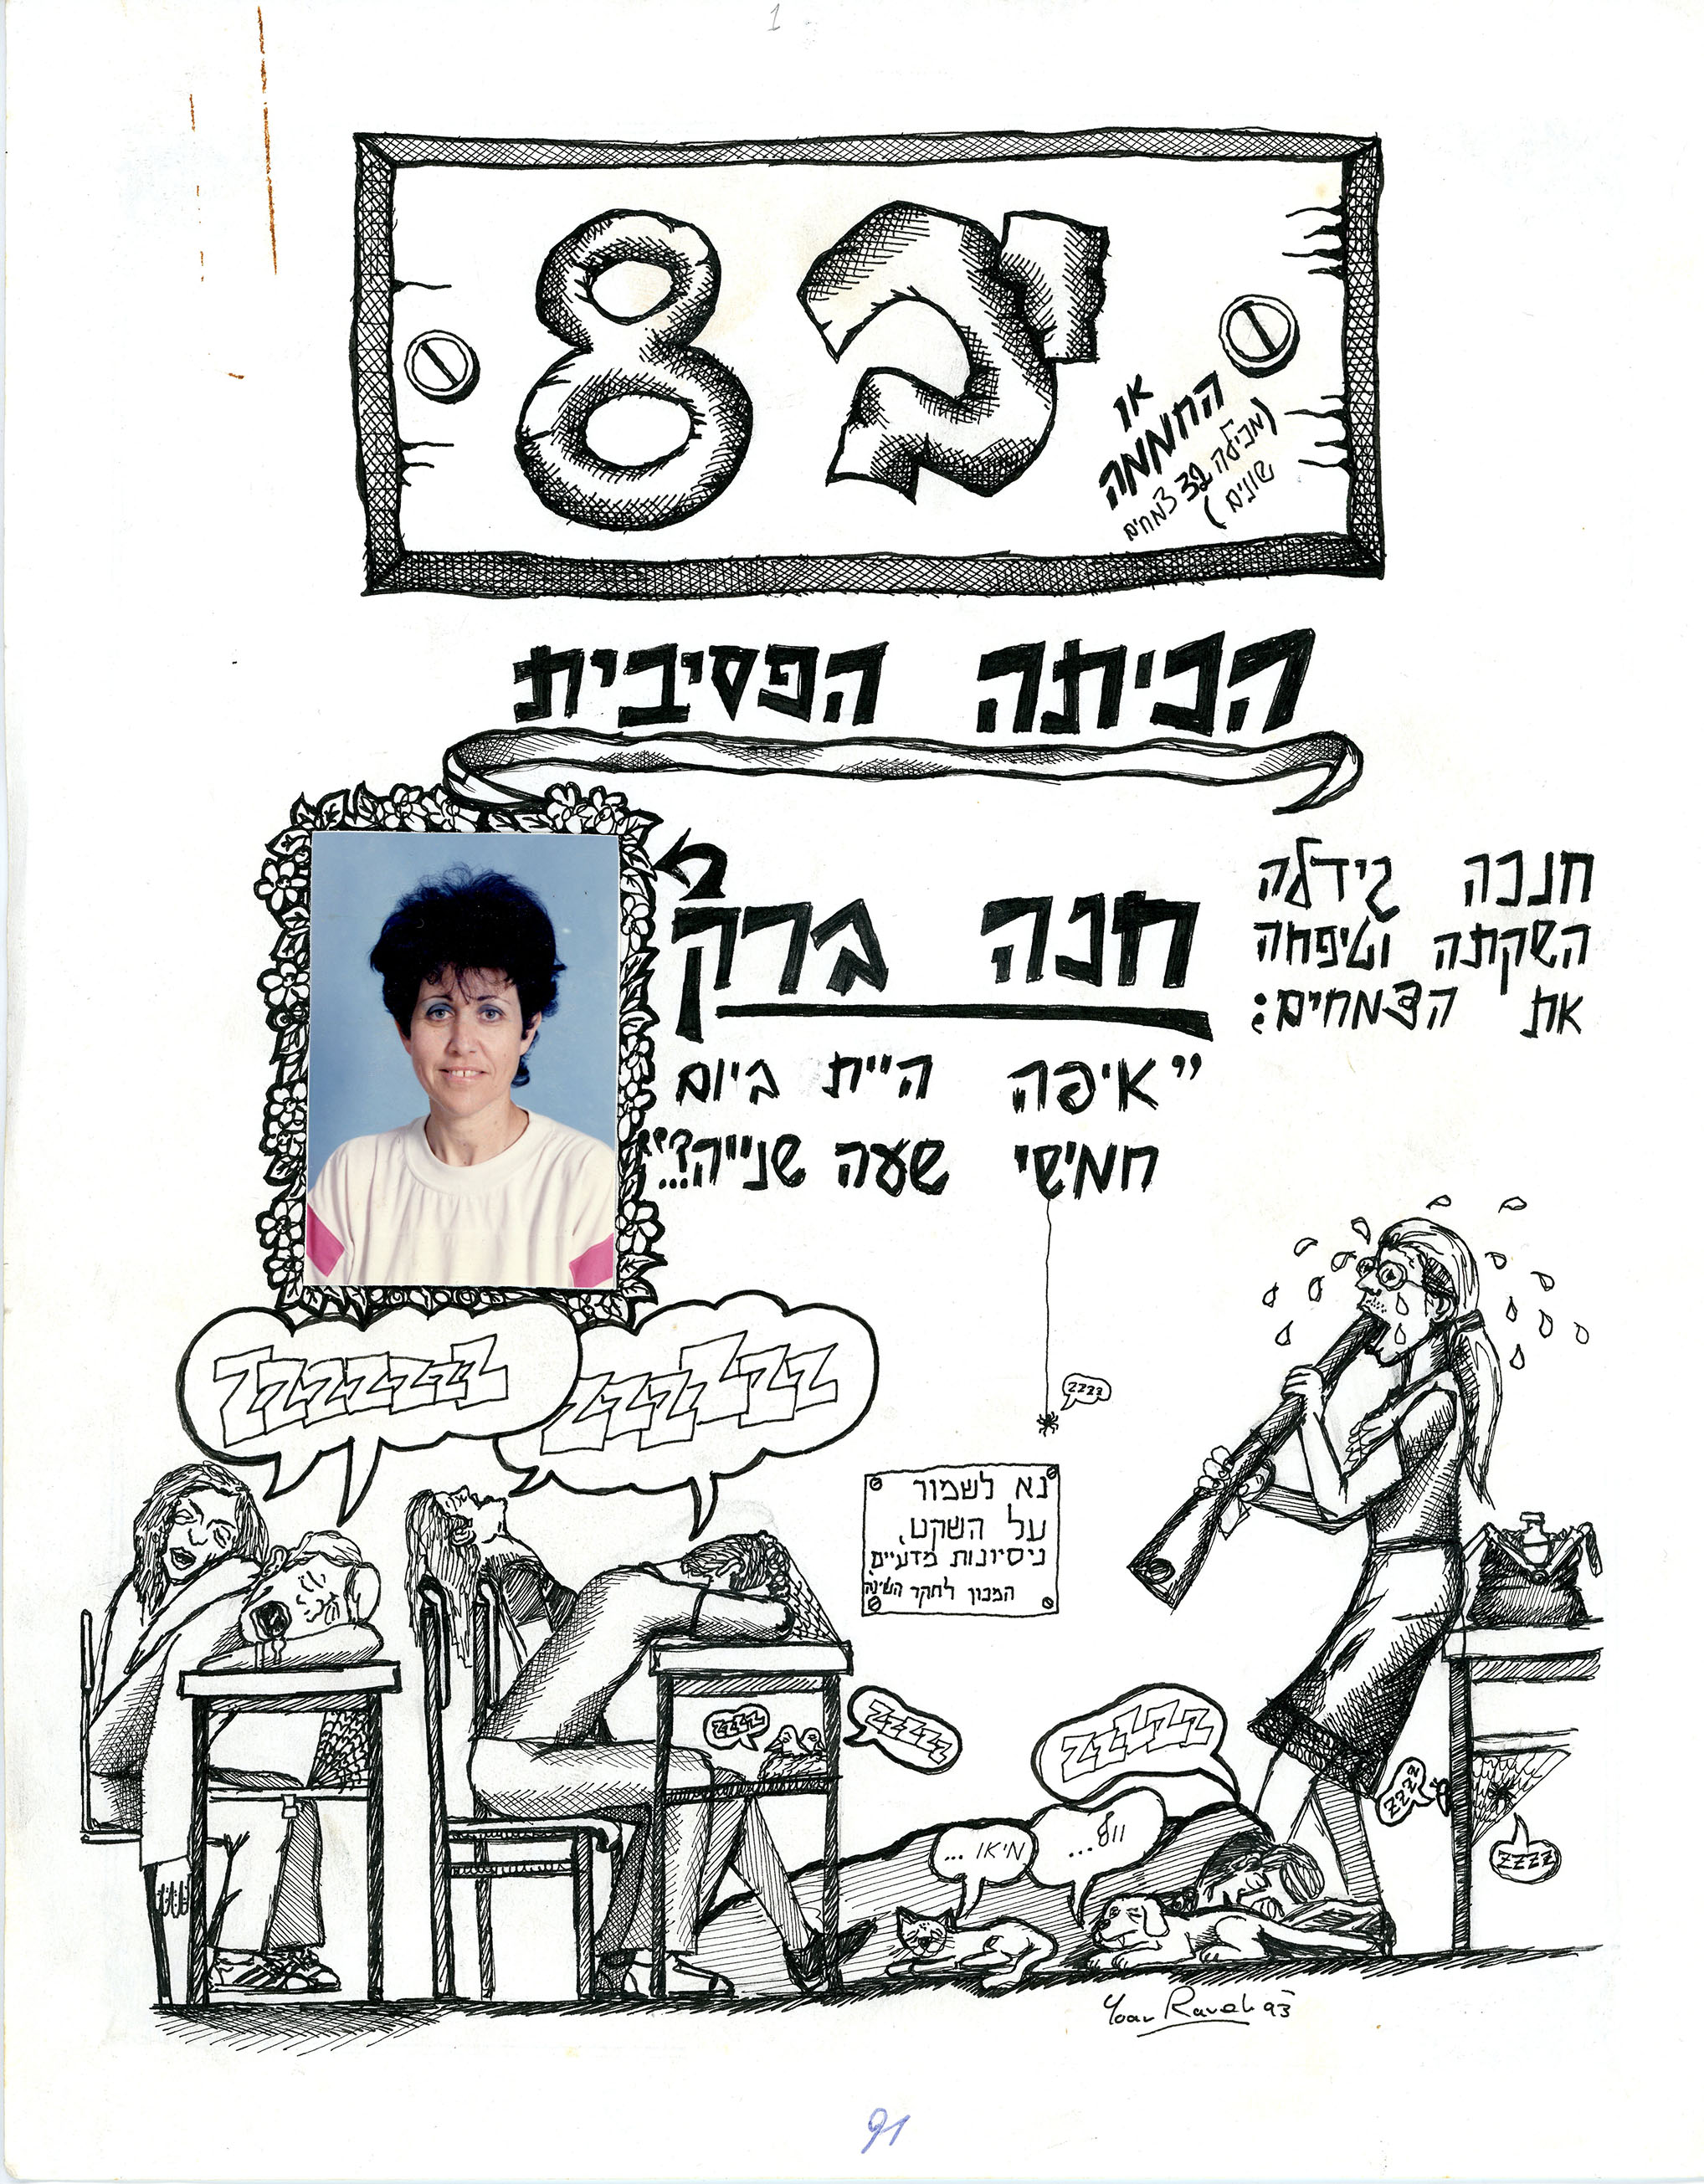 1
יב 8
או
החממה
(מכילה 32 צמחים
שונים)
הכיתה הפסיבית
חנכה גידלה
השקתה וטיפחה
את הצמחים:
חנה ברק
"איפה היית ביום
חמישי שעה שנייה?..."
ZZZZZZZ
ZZZZZZ
ZZZZ
נא לשמור
על השקט,
ניסיונות מדעיים,
המכון לחקר השינה
ZZZZ
ZZZZZ
ZZZZZZ
ZZZZ
ZZZZ
מיאו...
ווף...
Yoav Raveh 93
91